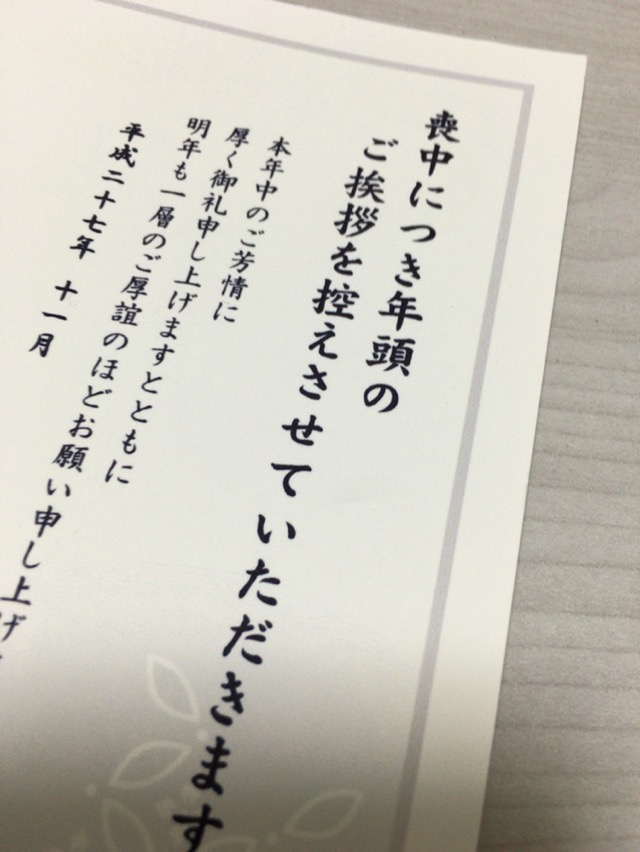 喪中につき年頭の
ご挨拶を控えさせていただきます
本年中のご芳情に
厚く御礼申し上げますとともに
明年も一層のご厚誼のほどお願い申し上げ
平成二十七年 十一月